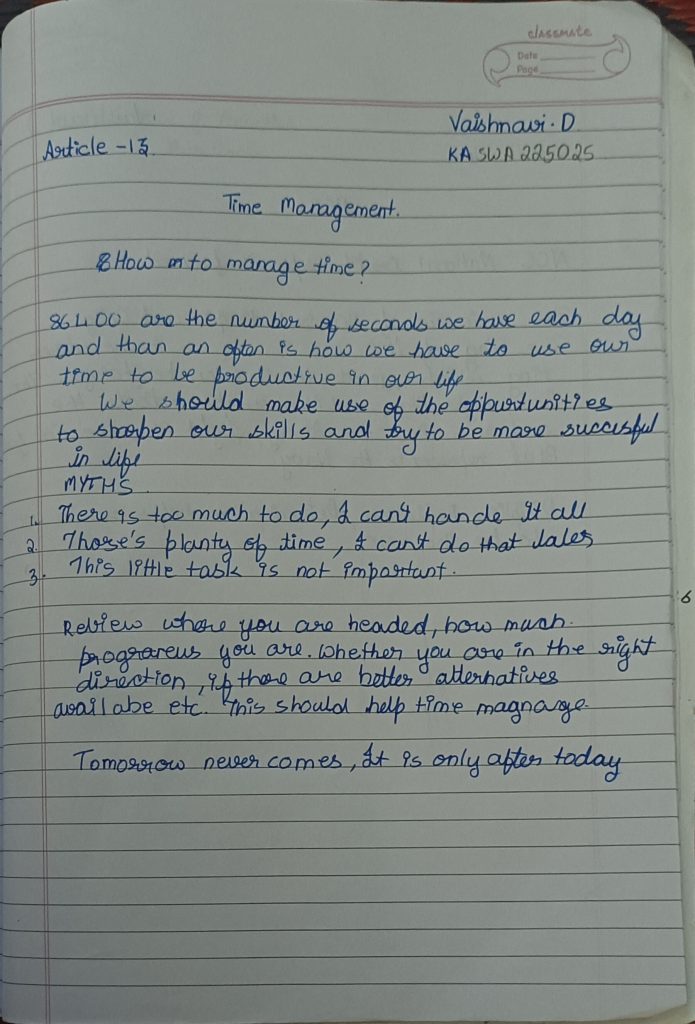 classmate
Date
Page
Vaishnavi. D
Article - 13.
KA SWA 225025
Time Management.
How to manage time?
86400 are the number of seconds we have each day
and than an often is how we have to use our
time to be productive in our life
We should make use of the oppurtunities
to sharpen our skills and try to be more succesful
in life
MYTHS.
1. There is too much to do, I can't hande it all
2. There's planty of time, I can't do that later
3. This little task is not important.
Review where you are headed, how much.
prograreus you are. whether you are in the right
direction, if there are better alternatives
availabe etc. This should help time magnage.
Tomorrow never comes, It is only after today
6